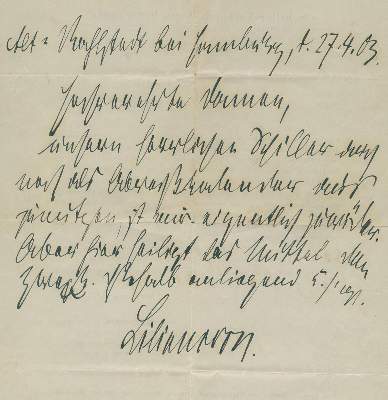 Alt-Rahlstedt bei Hamburg, d. 27.4.03.
Hochverehrte Damen,
unsern herrlichen Schiller auch
noch als Abreißkalender aus
zunützen, ist mir eigentlich zuwider.
Aber hier heiligt das Mittel den
Zweck. Deshalb anliegend 5.
Liliencron.